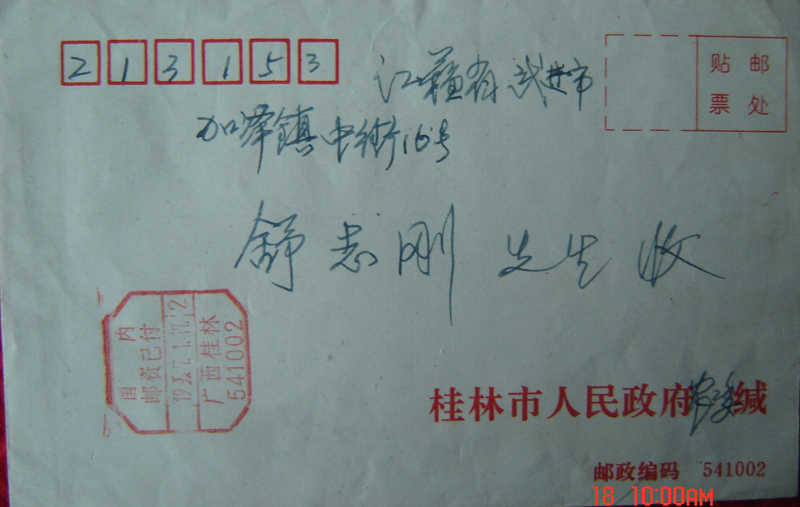 213153
贴 邮
票 处
江苏省武进市
加泽镇中街16号
舒志刚 先生 收
国内
邮资已付
广西桂林
541002
桂林市人民政府农委缄
邮政编码 541002
18 10:00AM